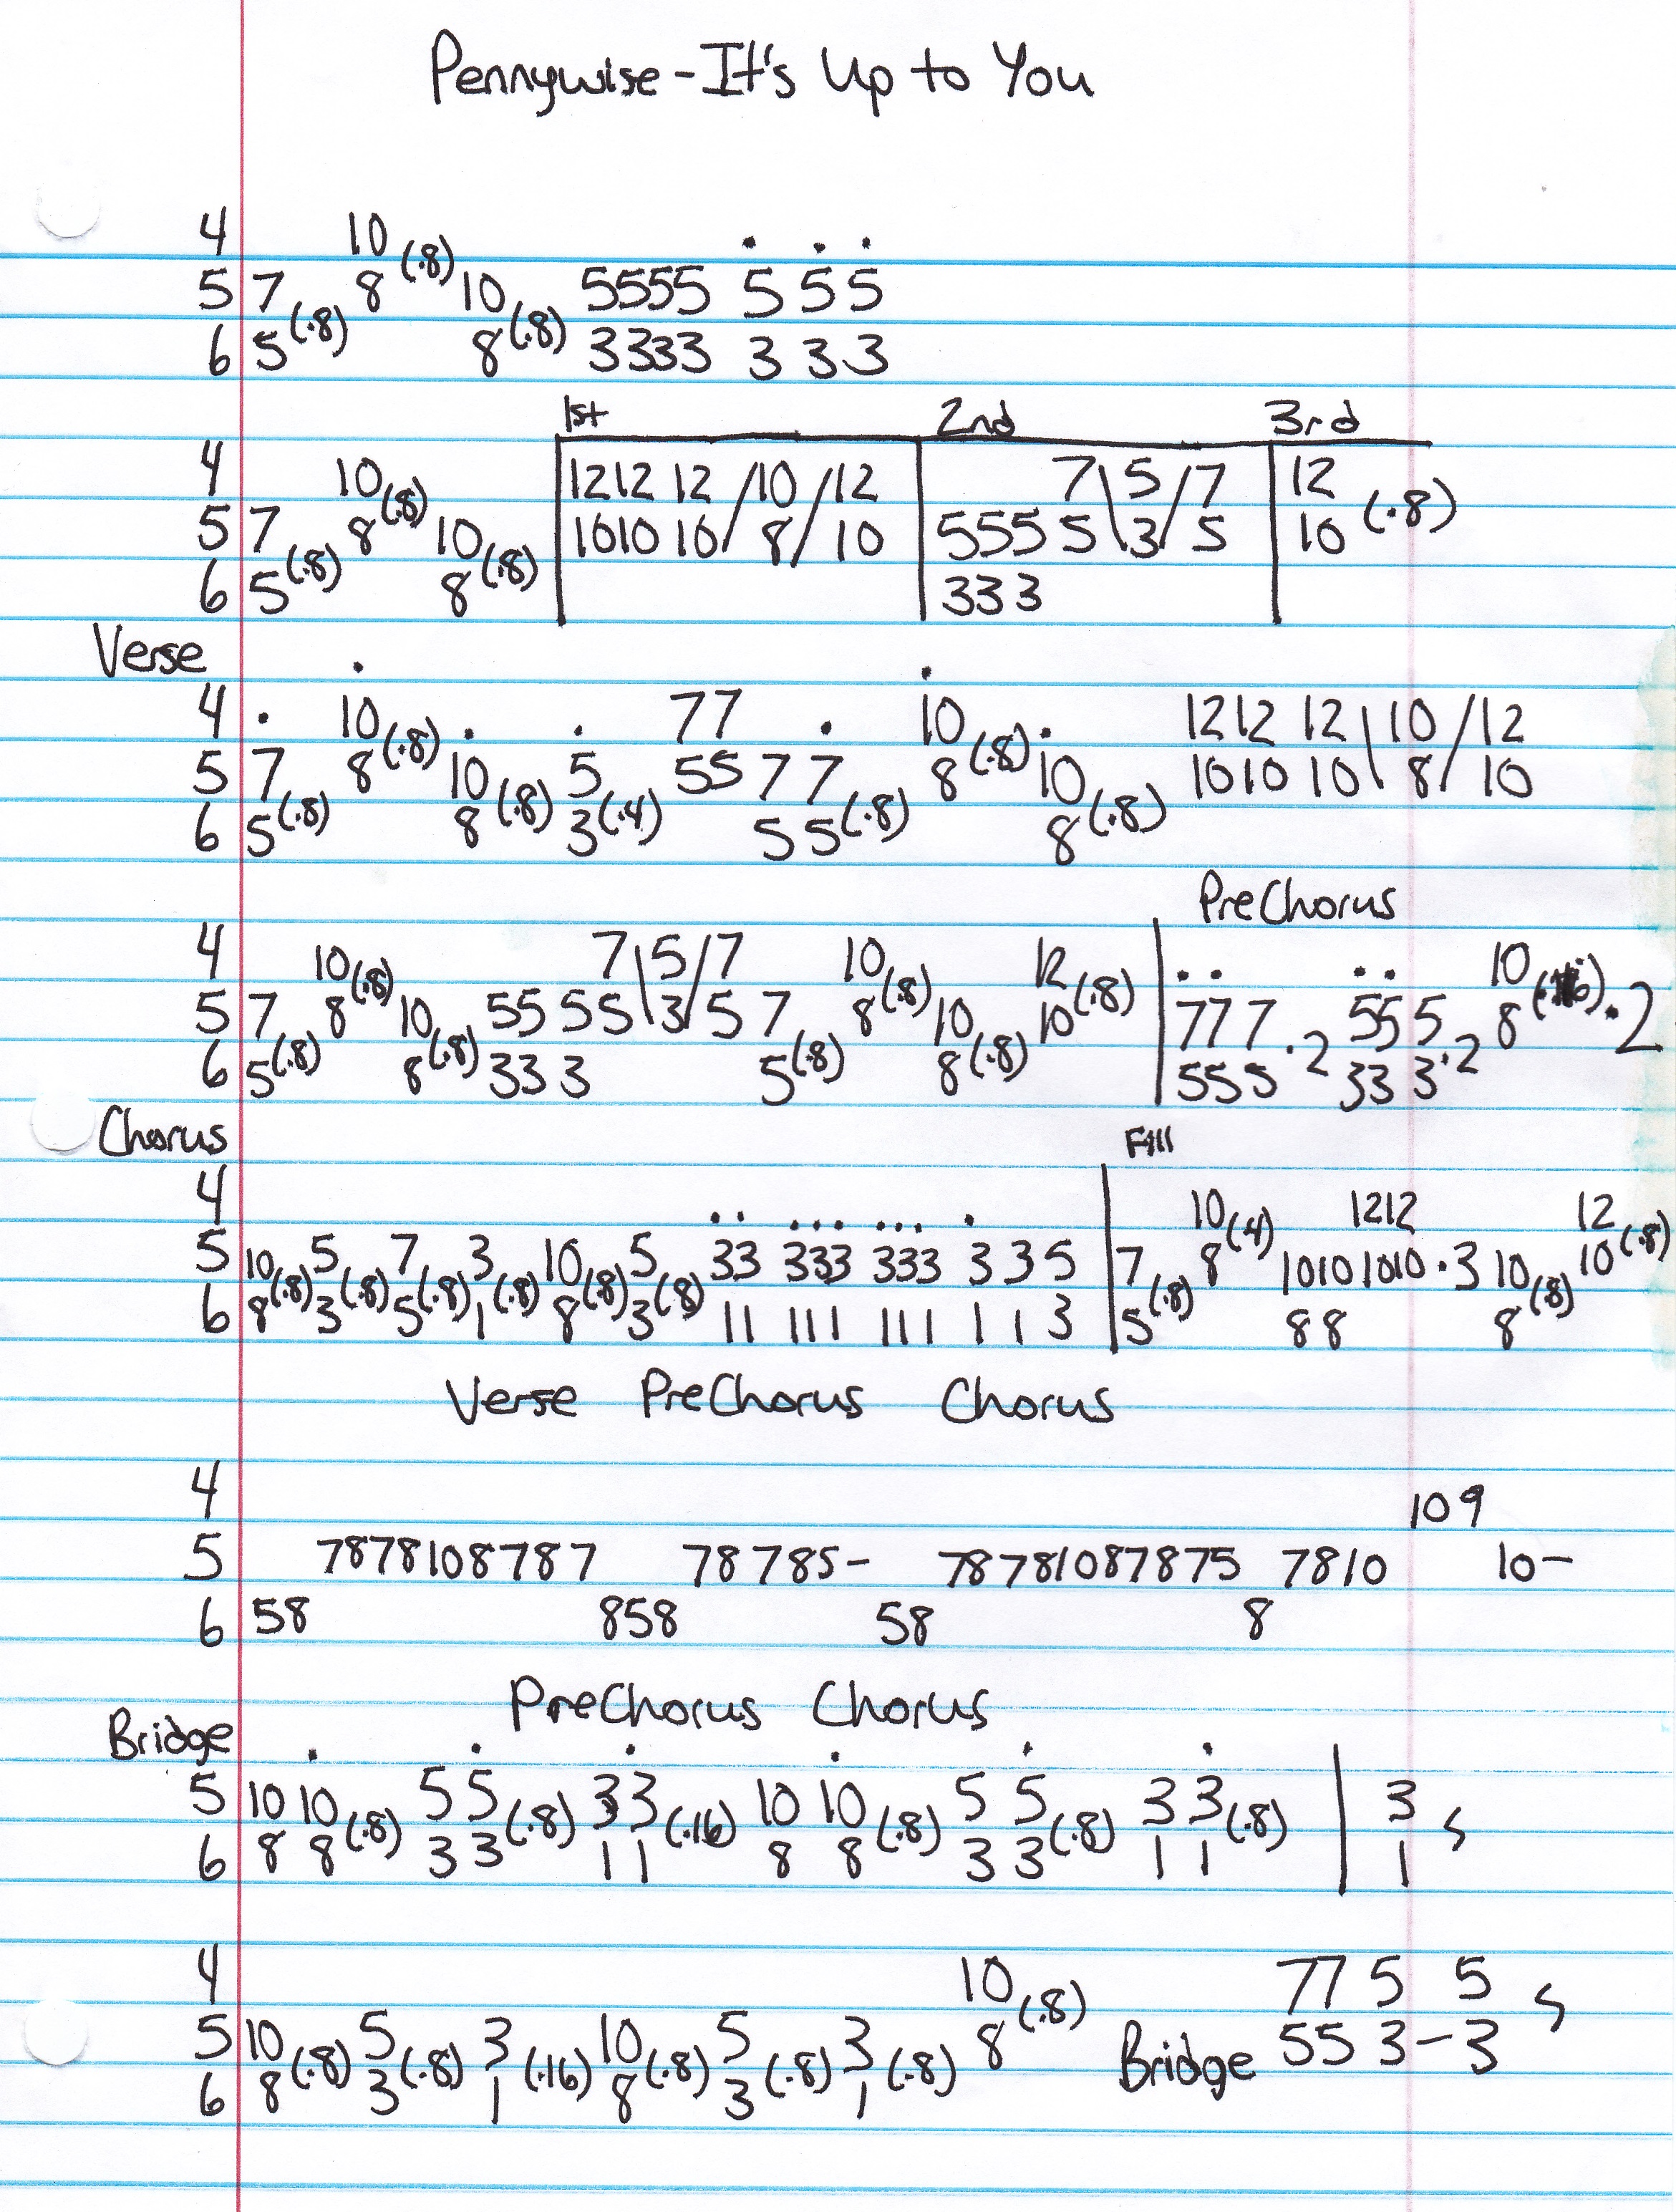 Pennywise - It's Up to You
4 10 (.8) . . .
5 7 (.8) 8 10 (.8) 5555 5 5 5
6 5 8 3333 3 3 3
1st 2nd 3rd
4 10 (.8) 12 12 12 / 10 / 12 7 \ 5 / 7 12 (.8)
5 7 (.8) 8 10 (.8) 10 10 10 / 8 / 10 5 5 5 5 \ 3 / 5 10
6 5 8 3 3 3
Verse . .
4 . 10 (.8) . . 7 7 . 10 (.8) . 12 12 12 \ 10 / 12
5 7 8 10 5 5 5 7 7 8 10 10 10 10 \ 8 / 10
6 5 (.8) 8 (.8) 3 (.4) 5 5 (.8) 8 (.8)
PreChorus
4 10 (.8) 7 \ 5 / 7 10 (.8) 12 (.8) . . . . 10
5 7 8 10 5 5 5 5 \ 3 / 5 7 8 10 10 7 7 7 5 5 5 8 (.16) .2
6 5 (.8) 8 (.8) 3 3 3 5 (.8) 8 (.8) 5 5 5 .2 3 3 3 .2
Chorus Fill
4 . . . . . . . . . 10 (.4) 12 12 12 (.8)
5 10 5 7 3 10 5 33 333 333 3 3 5 7 8 10 10 10 10 .3 10 10
6 8 (.8) 3 (.8) 5 (.8) 1 (.8) 8 (.8) 3 (.8) 11 111 111 1 1 3 5 (.8) 8 8 8 (.8)
Verse PreChorus Chorus
4 10 9
5 7878108787 78785- 78781087875 7810 10-
6 58 858 58 8
PreChorus Chorus
Bridge . . . . . .
5 10 10 5 5 3 3 10 10 5 5 3 3 3
6 8 8 (.8) 3 3 (.8) 1 1 (.16) 8 8 (.8) 3 3 (.8) 1 1 (.8) 1
4 10 (.8) 7 7 5 5
5 10 5 3 10 5 3 8 Bridge 5 5 3 - 3
6 8 (.8) 3 (.8) 1 (.16) 8 (.8) 3 (.8) 1 (.8)